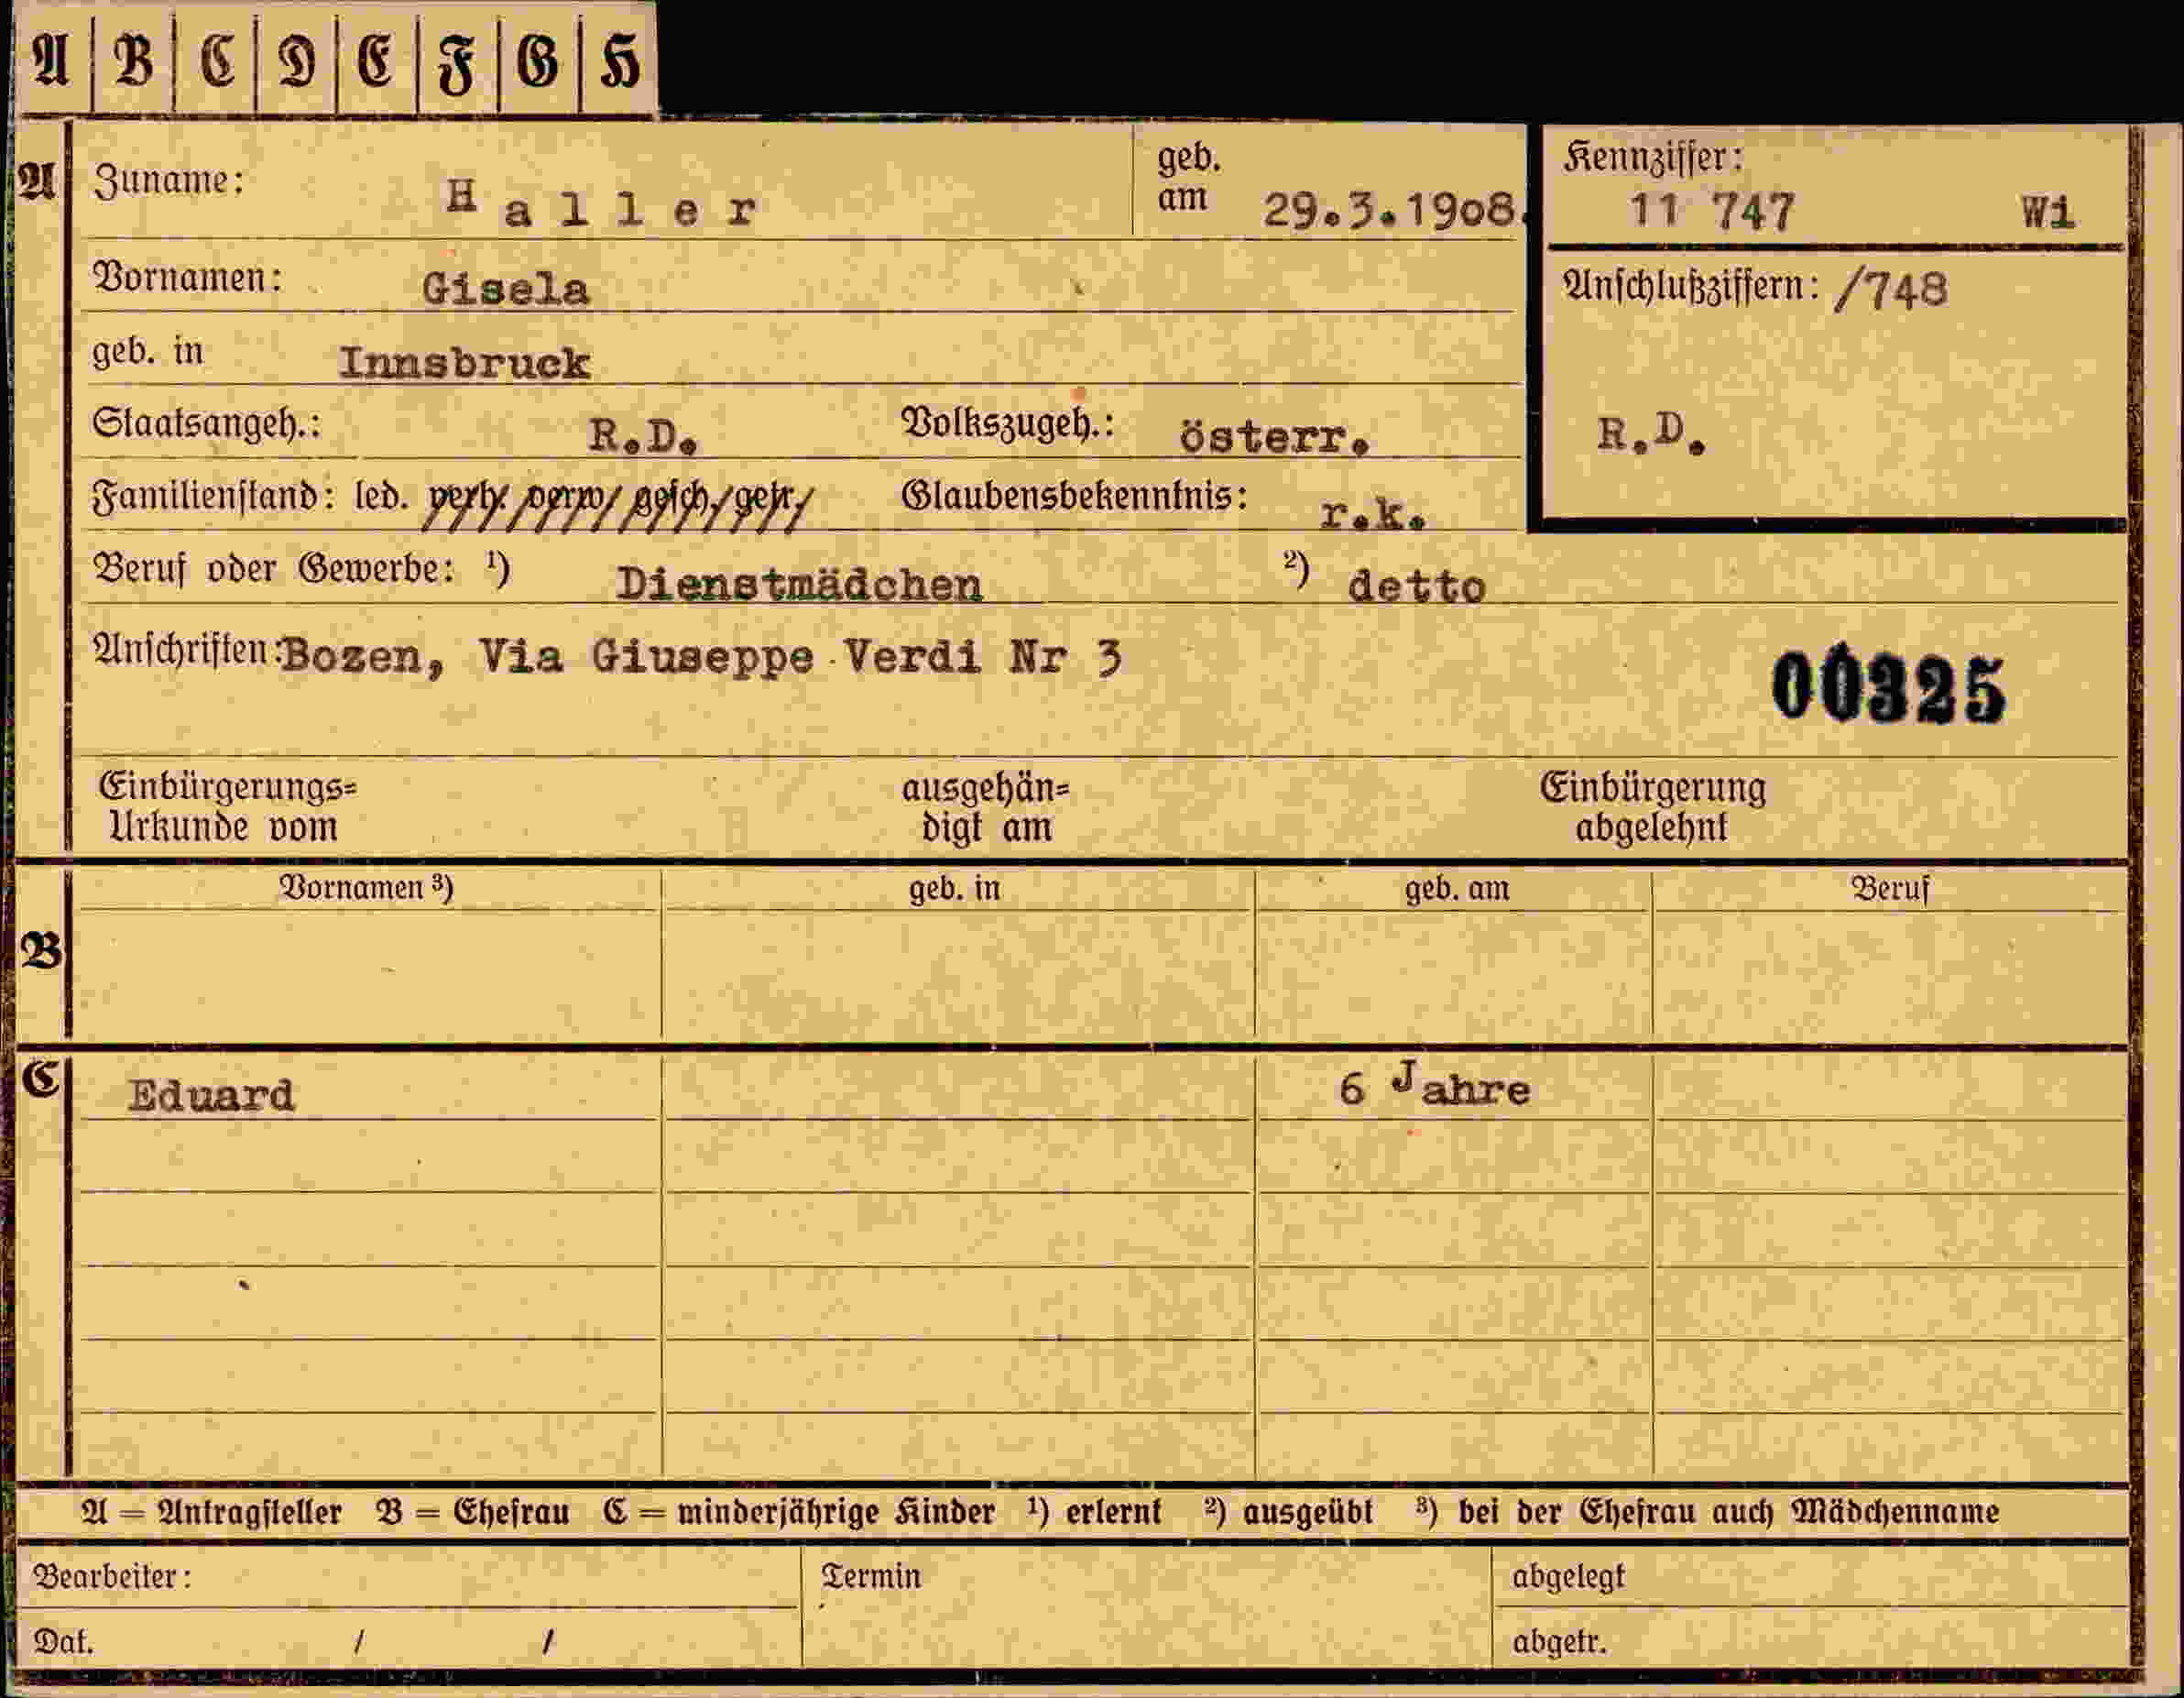 A B C D E F G H
A Zuname: Haller geb. am 29.3.1908. Kennziffer: 11 747 Wi
Vornamen: Gisela Anschlußziffern: /748
geb. in Innsbruck
Staatsangeh.: R.D. Volkszugeh.: österr. R.D.
Familienstand: led. verh. verw. gesch. getr. Glaubensbekenntnis: r.k.
Beruf oder Gewerbe: ¹) Dienstmädchen ²) detto
Anschriften: Bozen, Via Giuseppe Verdi Nr 3
00325
Einbürgerungs= ausgehän= Einbürgerung
Urkunde vom digt am abgelehnt
Vornamen ³) geb. in geb. am Beruf
B
C Eduard 6 Jahre
A = Antragsteller B = Ehefrau C = minderjährige Kinder ¹) erlernt ²) ausgeübt ³) bei der Ehefrau auch Mädchenname
Bearbeiter: Termin abgelegt
Dat. / / abgetr.